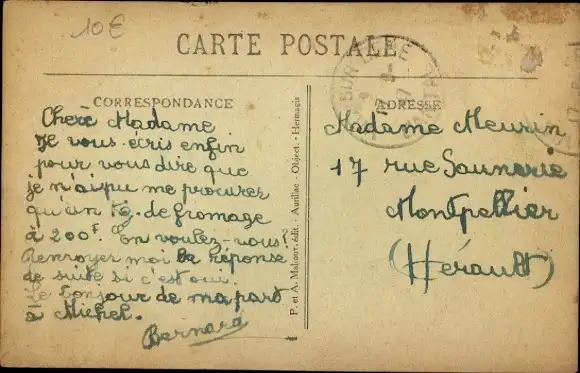 10€
CARTE POSTALE
CORRESPONDANCE
Chère Madame
Je vous écris enfin
pour vous dire que
je n'ai pu me procurer
qu'un Kg. de fromage
à 200F. En voulez-vous?
Renvoyer moi la réponse
de suite si c'est oui.
Le bonjour de ma part
à Michel.
Bernard
P. et A. Malroux, édit. - Aurillac - Object. - Hermagis
ADRESSE
Madame Meurin
17 rue Saunerie
Montpellier
(Hérault)